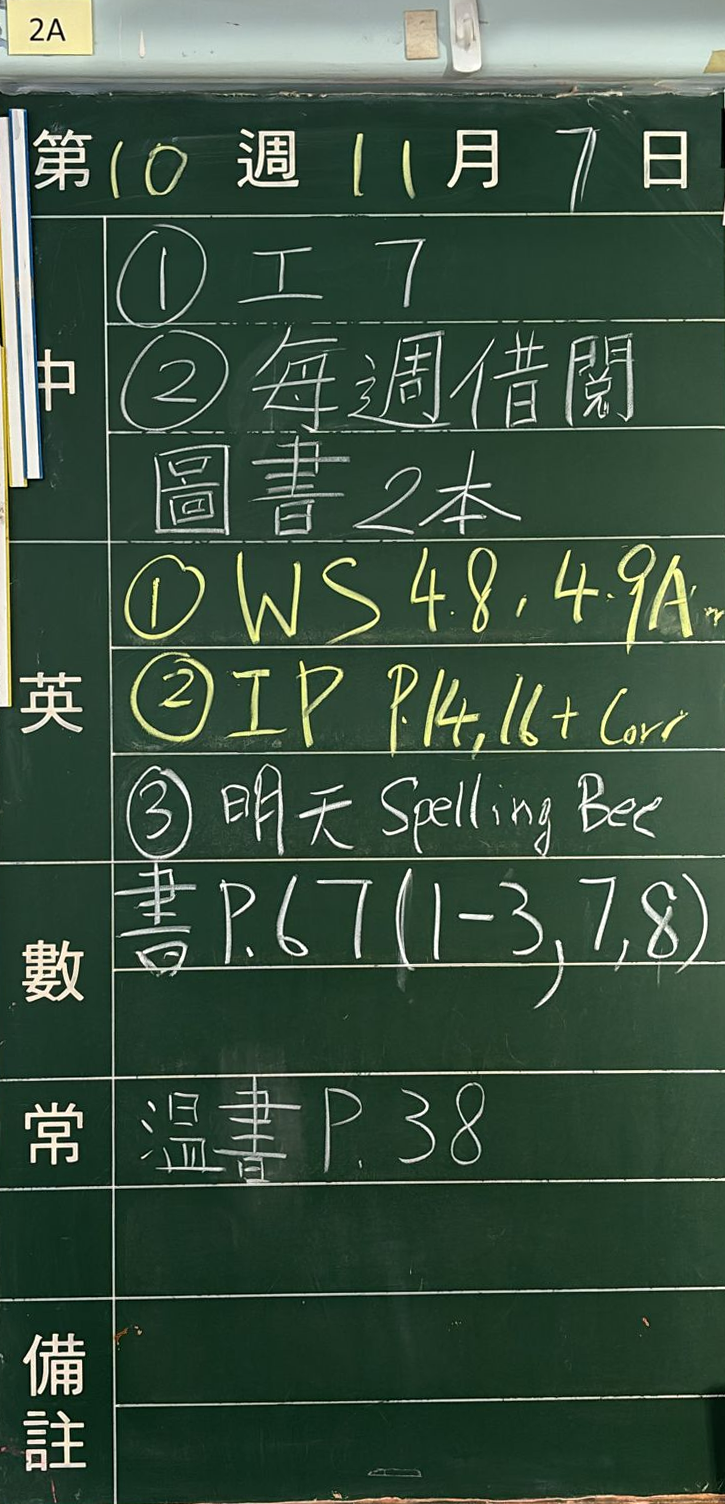 2A
第10週11月7日
中
① 工7
② 每週借閱
圖書2本
英
① WS 4.8, 4.9A
② IP P.14, 16 + Corr
③ 明天 Spelling Bee
數
書 P.67 (1-3, 7, 8)
常
溫書 P.38
備註